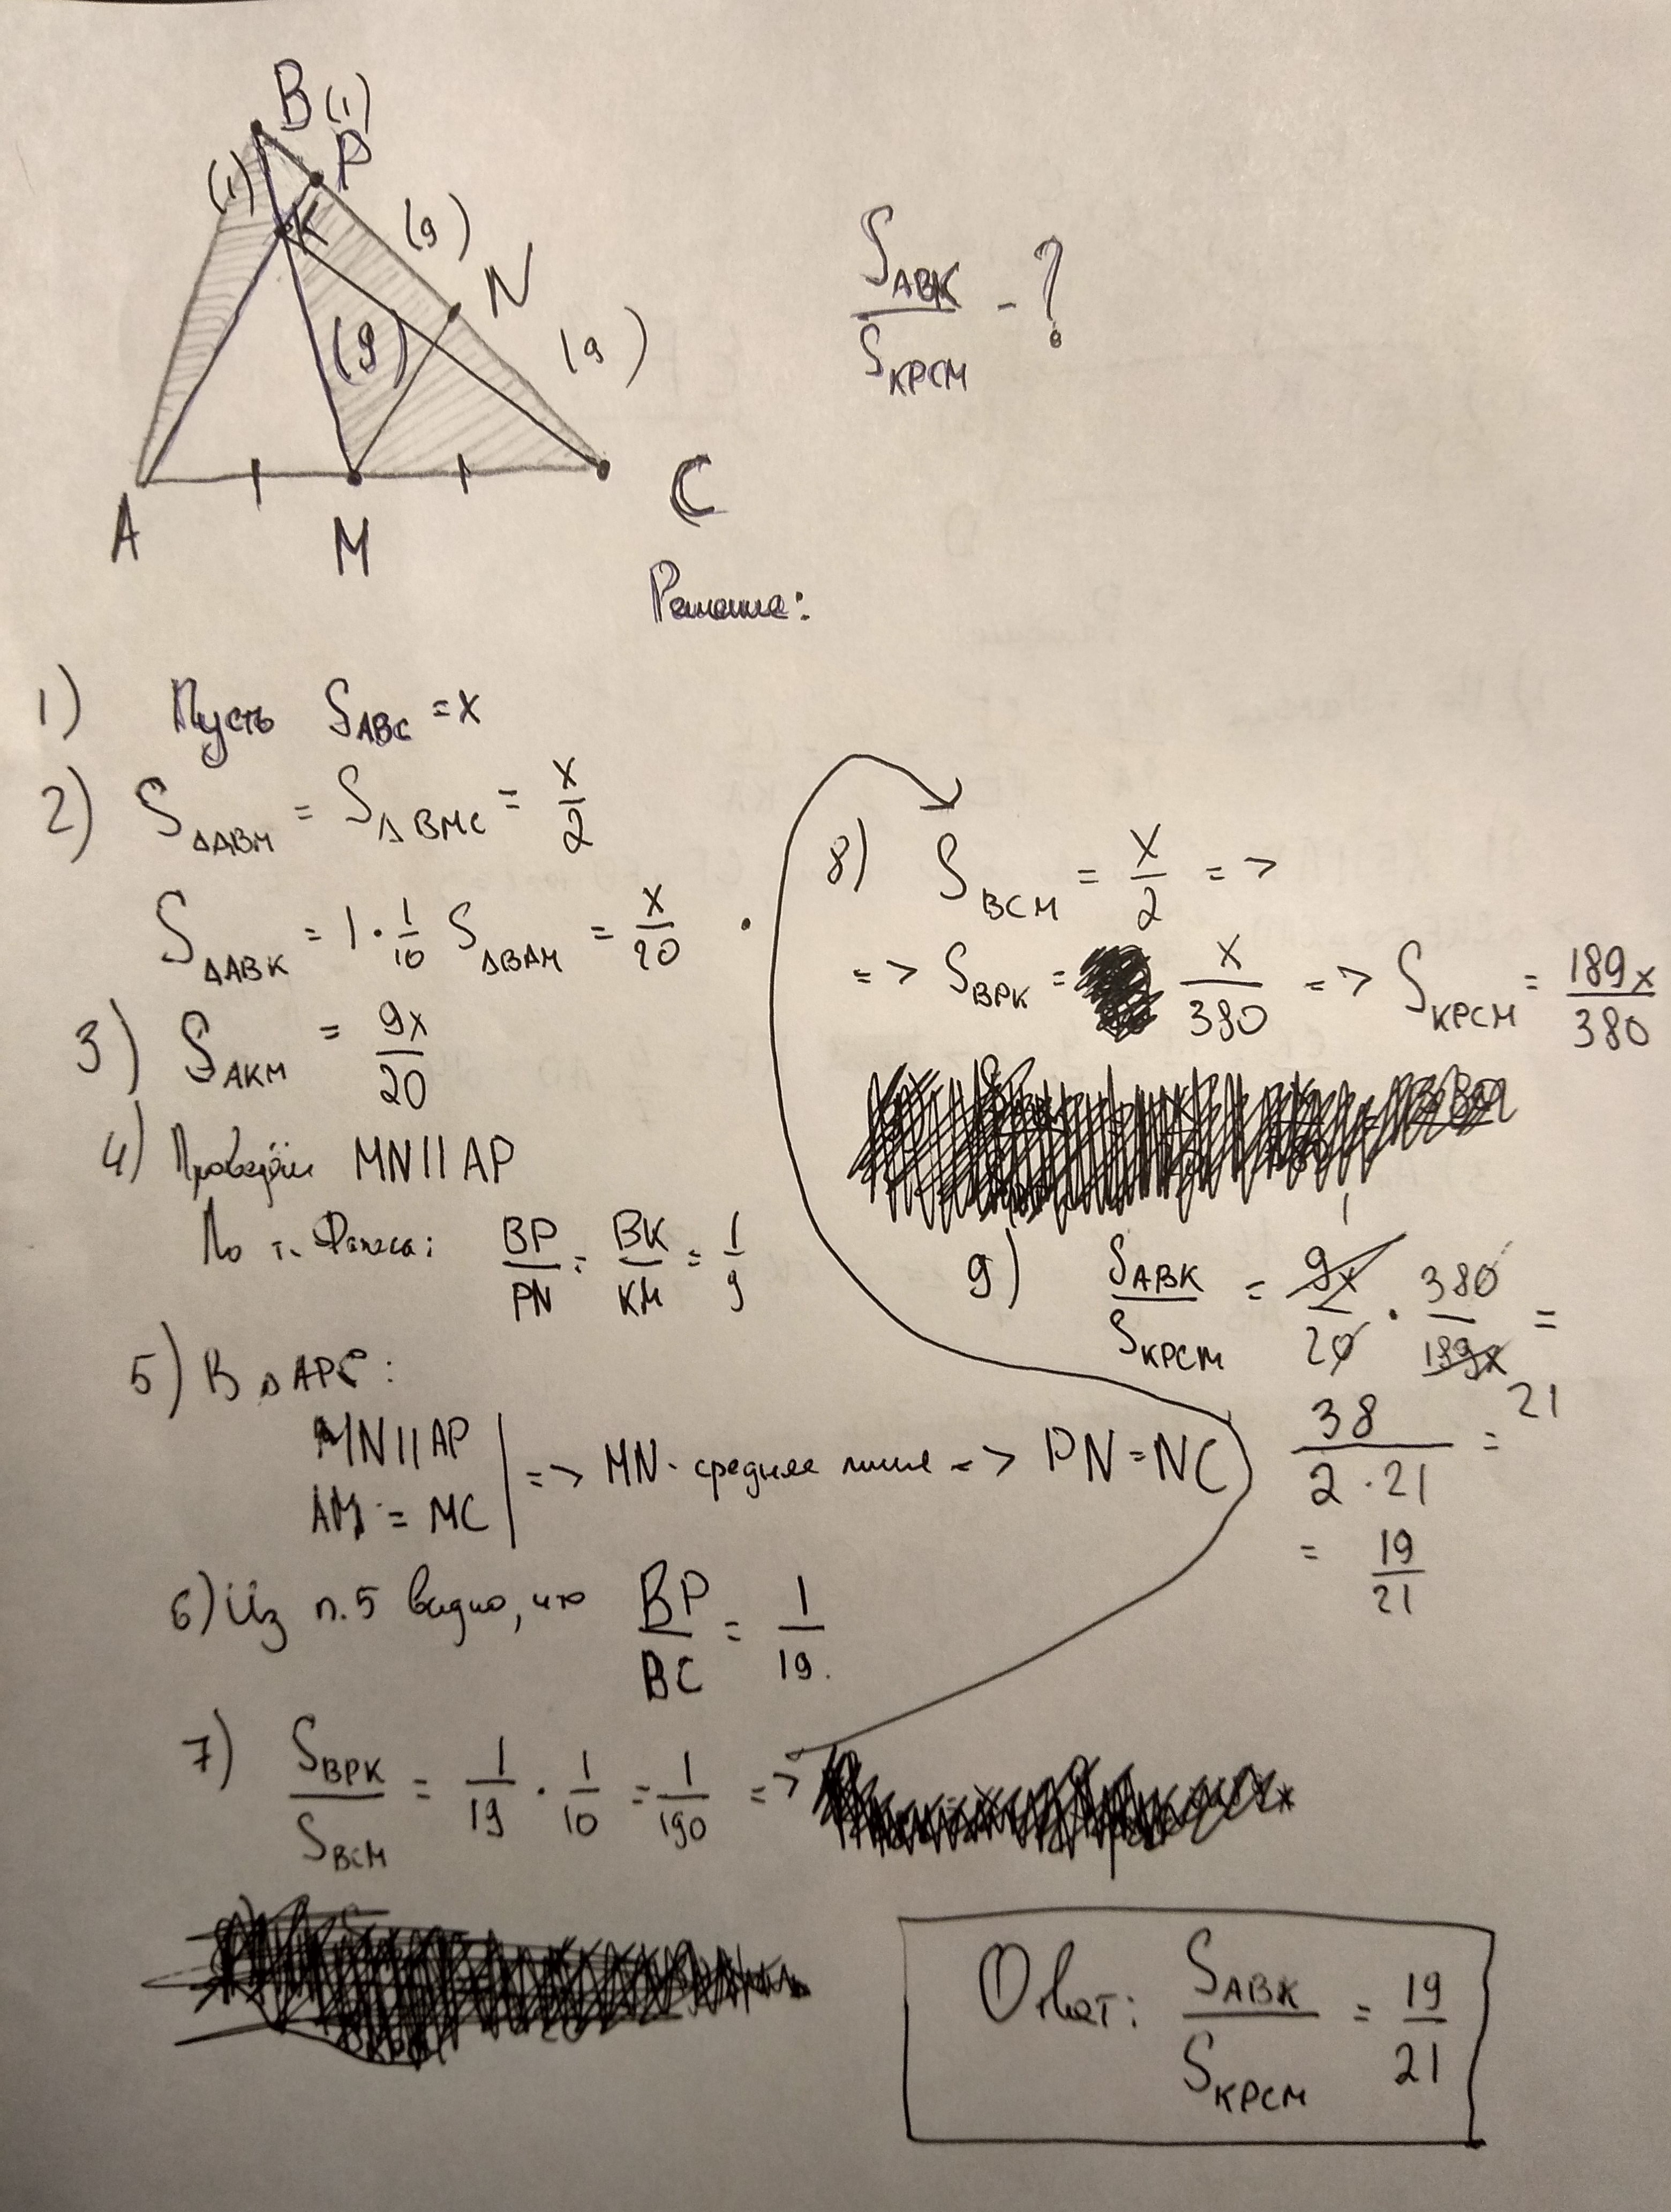 B (1)
P
(1)
K
(9)
N
(9)
(9)
A
M
C
S_ABK / S_KPCM - ?
Решение:
1) Пусть S_ABC = x
2) S_ΔABM = S_ΔBMC = x/2
S_ΔABK = 1 · 1/10 S_ΔBAM = x/20
3) S_AKM = 9x/20
4) Проведём MN || AP
По т. Фалеса: BP/PN = BK/KM = 1/9
5) В Δ APC:
MN || AP
AM = MC
=> MN - средняя линия => PN = NC
6) Из п.5 видно, что BP/BC = 1/19.
7) S_BPK / S_BCM = 1/19 · 1/10 = 1/190 =>
8) S_BCM = x/2 =>
=> S_BPK = x/380 => S_KPCM = 189x/380
9) S_ABK / S_KPCM = 9x/20 · 380/189x =
1
21
38 / 2 · 21 =
= 19/21
Ответ: S_ABK / S_KPCM = 19/21